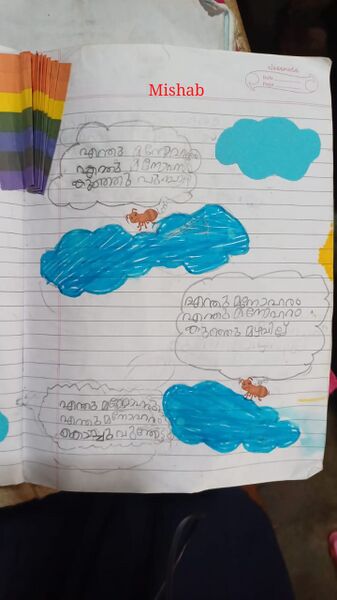 Mishab
classmate
Date
Page
എന്തു മനോഹരം
എന്തു മനോഹരം
കുഞ്ഞു
എന്തു മനോഹരം
എന്തു മനോഹരം
കുഞ്ഞു മഴവില്ല്
എന്തു മനോഹരം
എന്തു മനോഹരം
കൊച്ചു